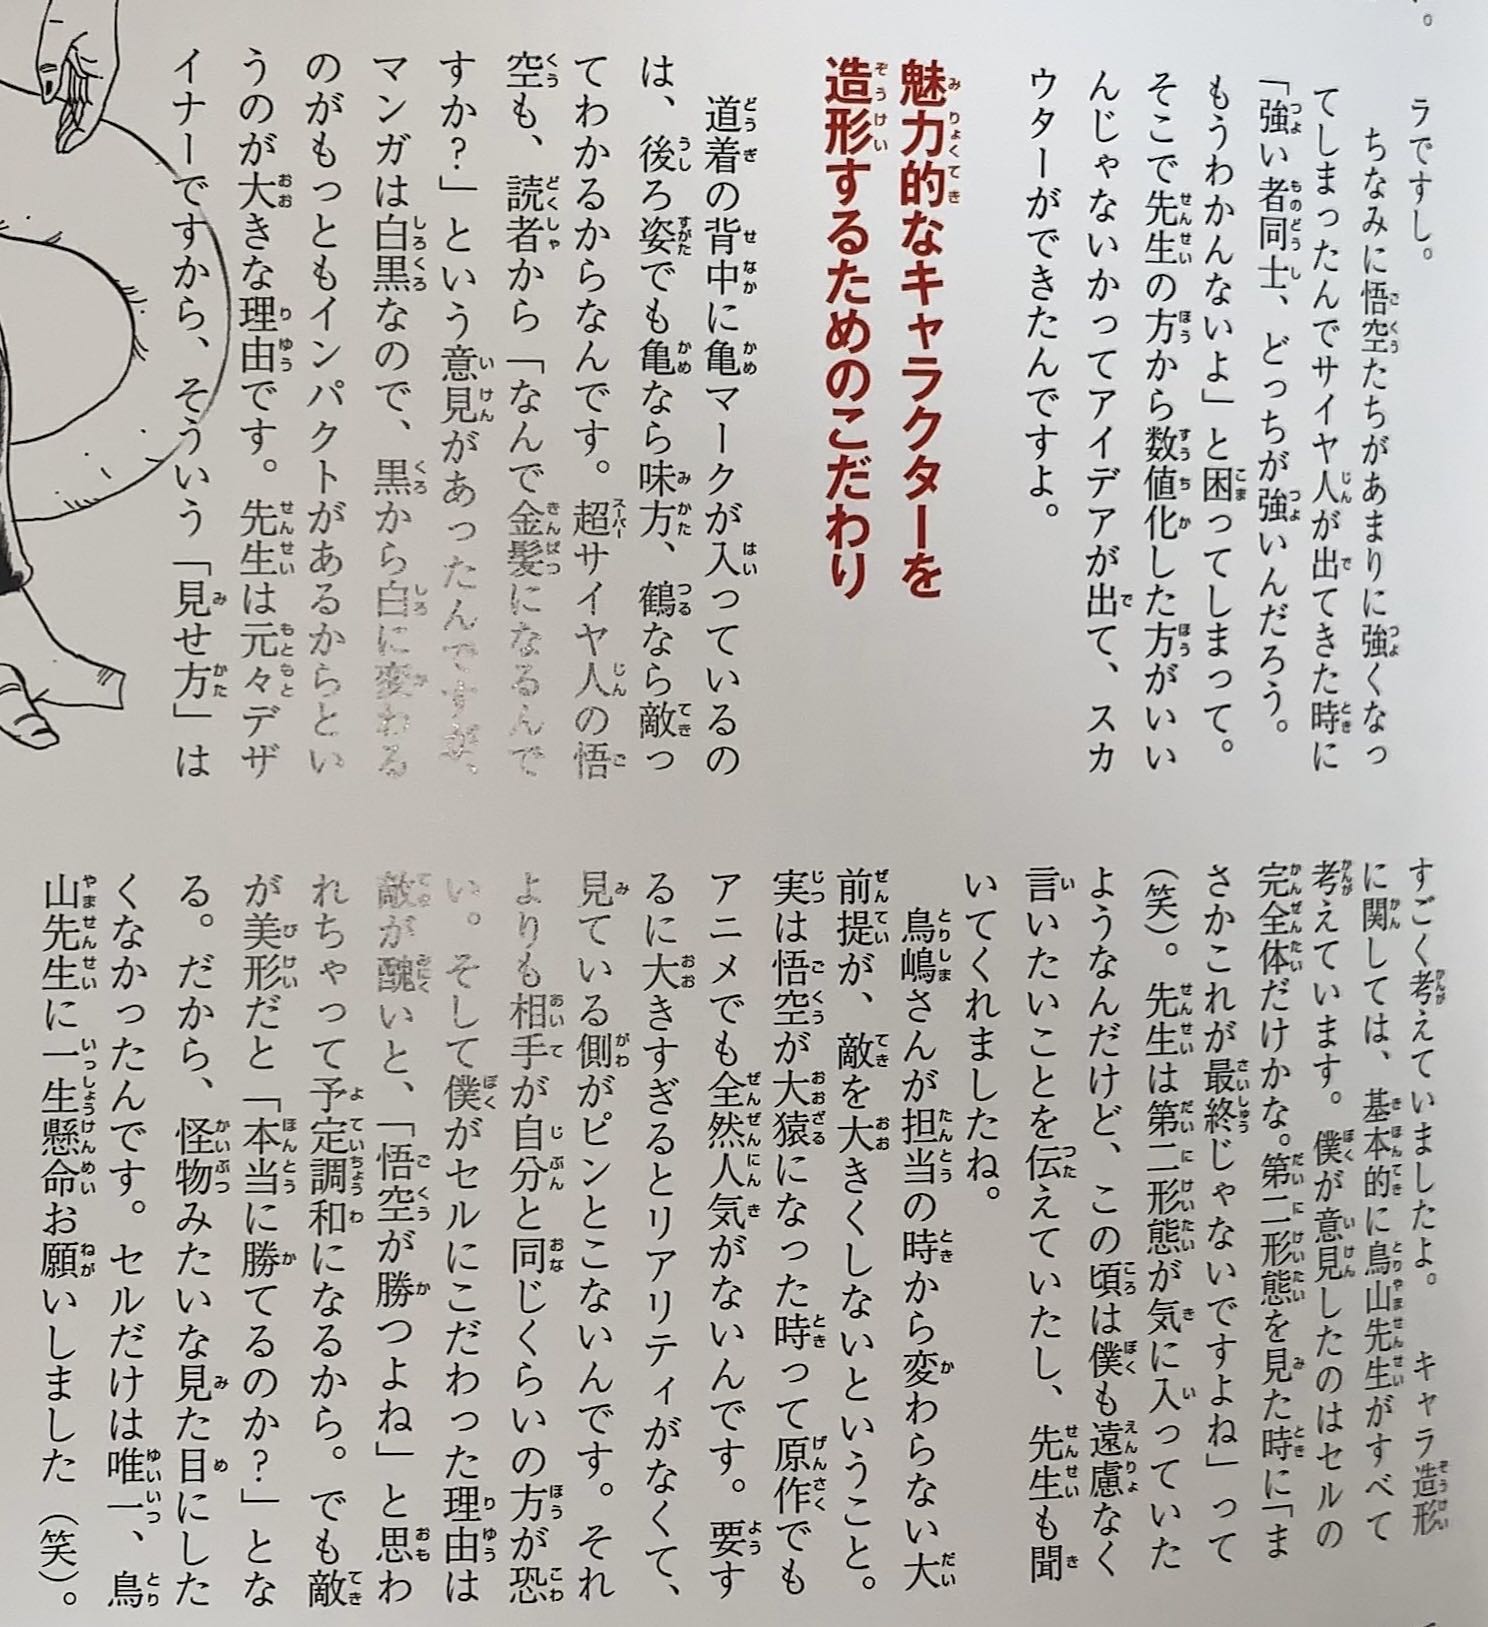 ラですし。
ちなみに悟空たちがあまりに強くなっ
てしまったんでサイヤ人が出てきた時に
「強い者同士、どっちが強いんだろう。
もうわかんないよ」と困ってしまって。
そこで先生の方から数値化した方がいい
んじゃないかってアイデアが出て、スカ
ウターができたんですよ。
魅力的なキャラクターを
造形するためのこだわり
道着の背中に亀マークが入っているの
は、後ろ姿でも亀なら味方、鶴なら敵っ
てわかるからなんです。超サイヤ人の悟
空も、読者から「なんで金髪になるんで
すか?」という意見があったんですが、
マンガは白黒なので、黒から白に変わる
のがもっともインパクトがあるからとい
うのが大きな理由です。先生は元々デザ
イナーですから、そういう「見せ方」は
すごく考えていましたよ。キャラ造形
に関しては、基本的に鳥山先生がすべて
考えています。僕が意見したのはセルの
完全体だけかな。第二形態を見た時に「ま
さかこれが最終じゃないですよね」って
(笑)。先生は第二形態が気に入っていた
ようなんだけど、この頃は僕も遠慮なく
言いたいことを伝えていたし、先生も聞
いてくれましたね。
鳥嶋さんが担当の時から変わらない大
前提が、敵を大きくしないということ。
実は悟空が大猿になった時って原作でも
アニメでも全然人気がないんです。要す
るに大きすぎるとリアリティがなくて、
見ている側がピンとこないんです。それ
よりも相手が自分と同じくらいの方が恐
い。そして僕がセルにこだわった理由は
敵が醜いと、「悟空が勝つよね」と思わ
れちゃって予定調和になるから。でも敵
が美形だと「本当に勝てるのか?」とな
る。だから、怪物みたいな見た目にした
くなかったんです。セルだけは唯一、鳥
山先生に一生懸命お願いしました(笑)。